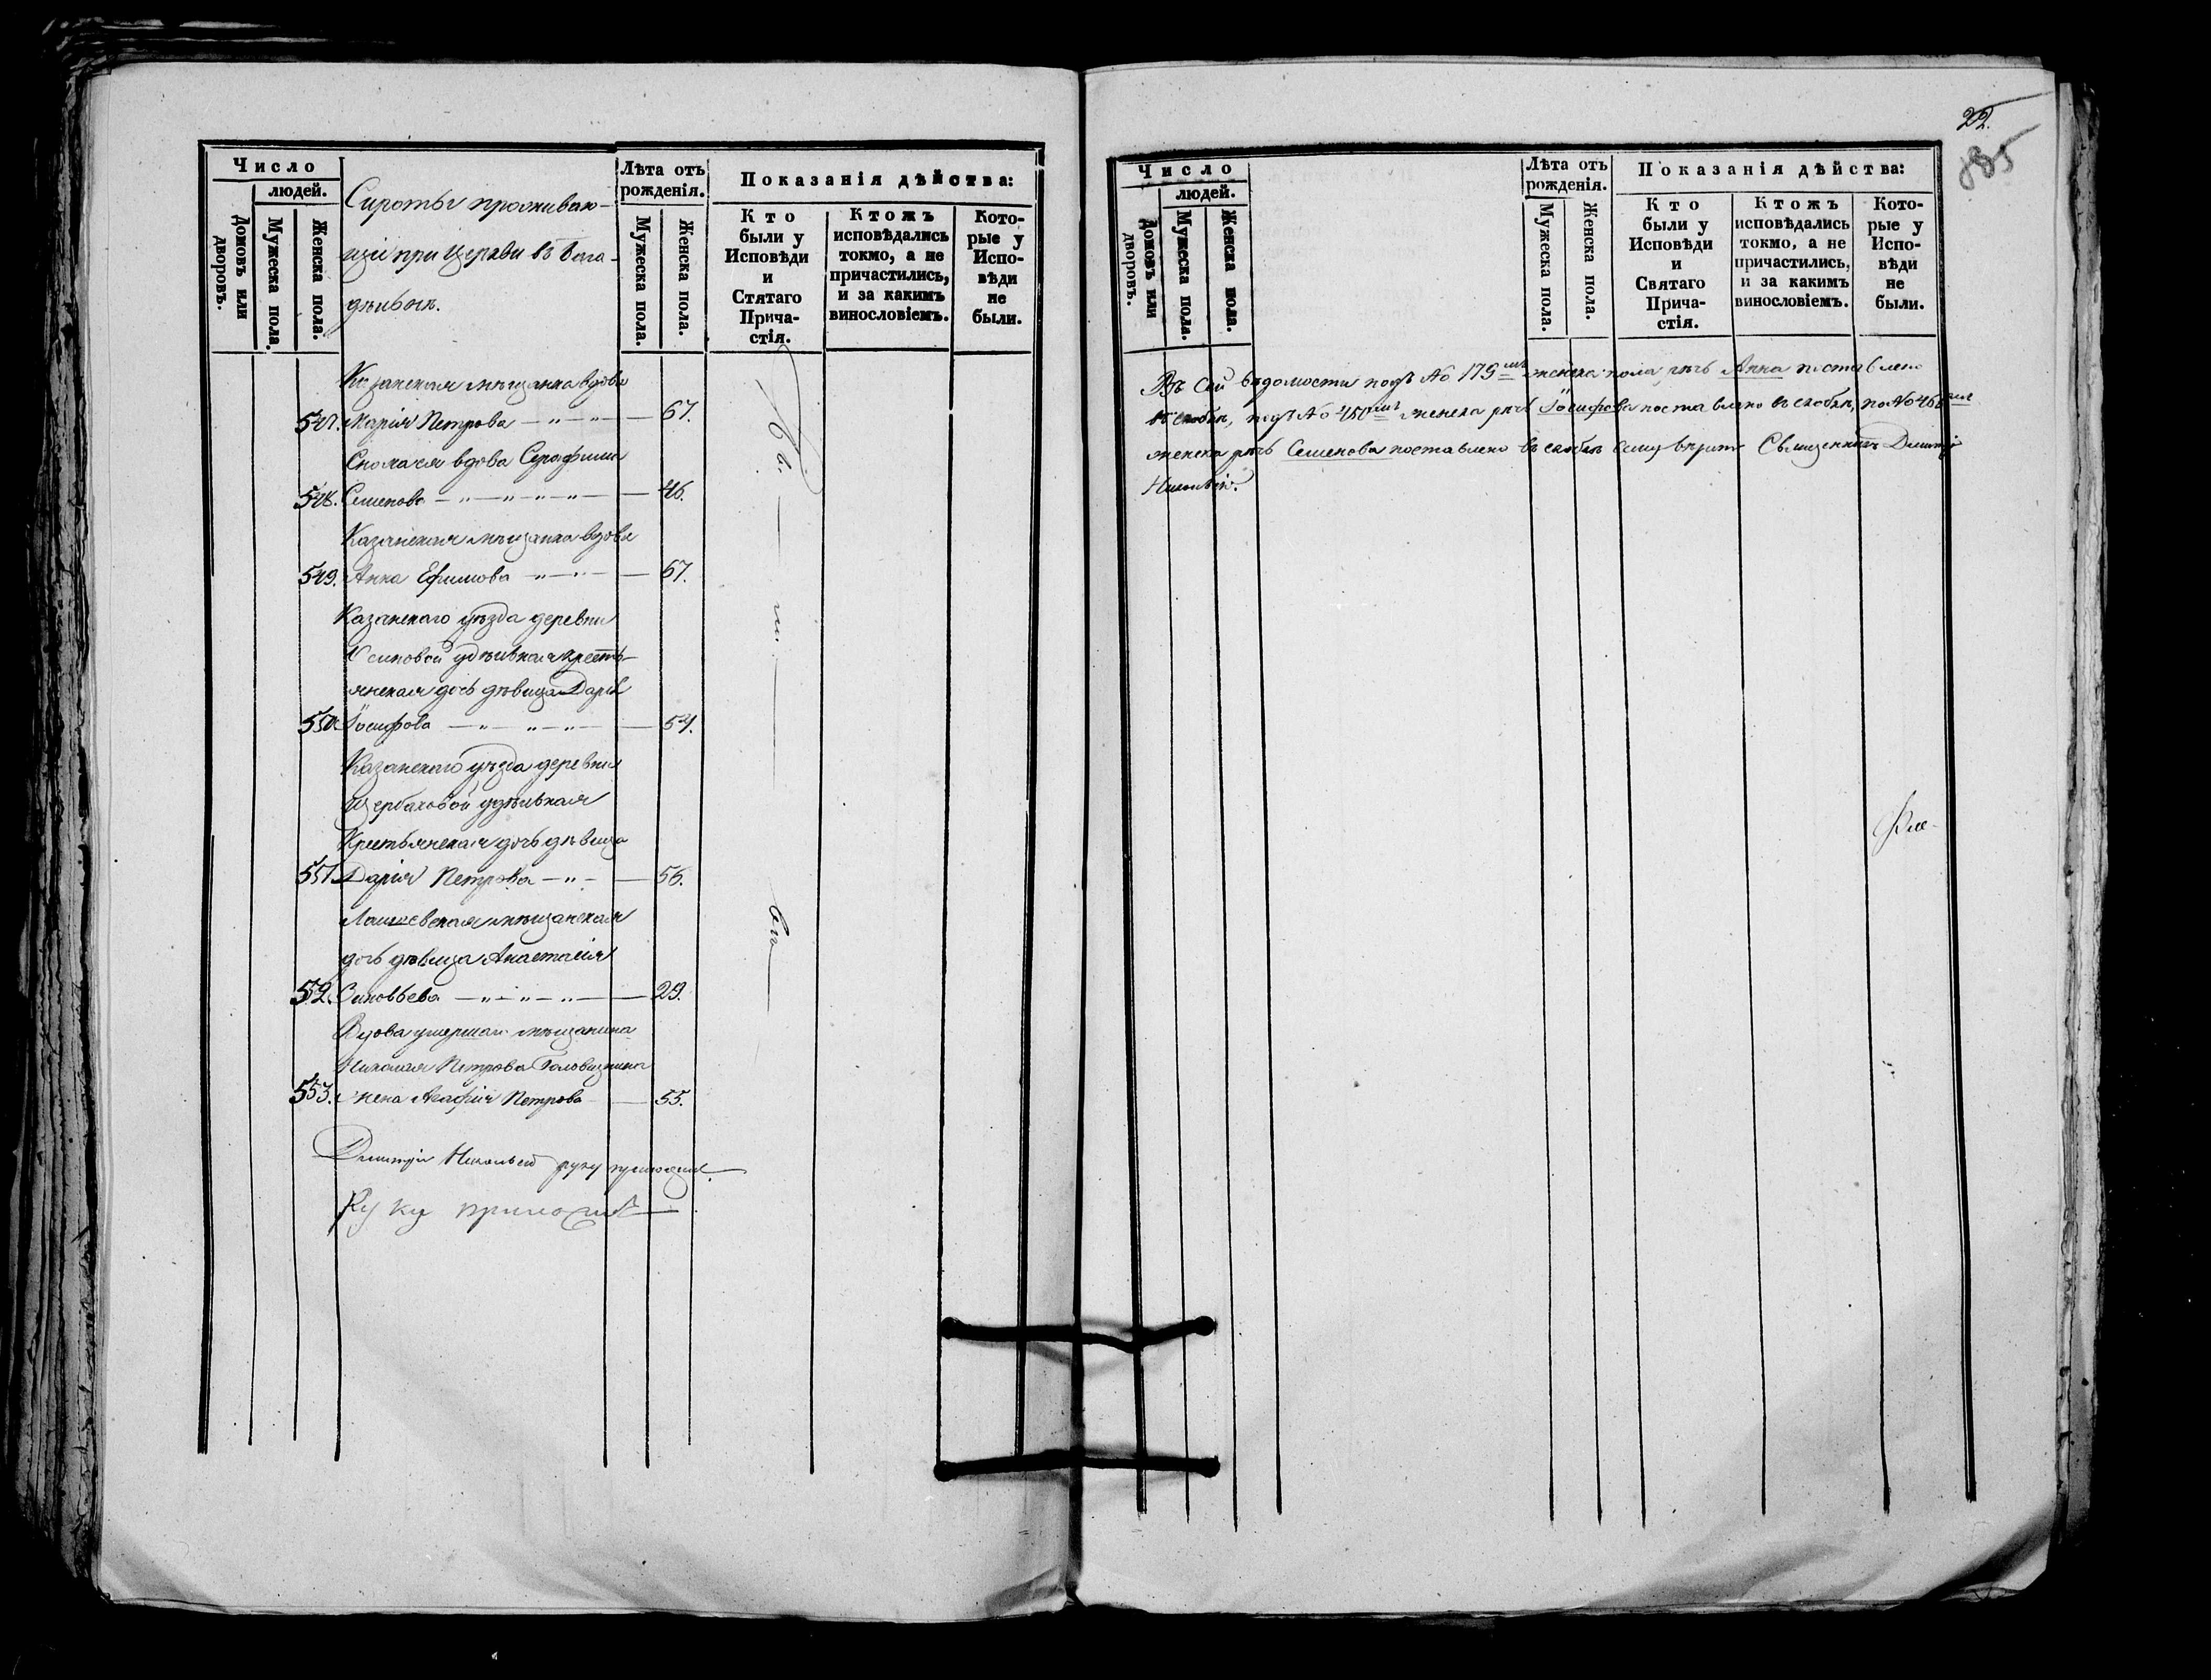 Число
людей.
Домовъ или дворовъ.
Мужеска пола.
Женска пола.
Сироты проживаю-
щіе при Церкви въ Бога-
дѣльнѣ.
Лѣта отъ
рожденія.
Мужеска пола.
Женска пола.
Показанія дѣйства:
Кто
были у
Исповѣди
и
Стятаго
Прича-
стія.
Ктожъ
исповѣдались
токмо, а не
причастились,
и за какимъ
винословіемъ.
Кото-
рые у
Испо-
вѣди
не
были.
Казанская мѣщанка вдова
547. Марія Петрова — „ — „ — 67.
вдова
548. Семенова — „ — „ — „ — „ — 46.
Казанская мѣщанка вдова
549. Анна Ефимова — „ — „ — 67.
Казанскаго уѣзда деревни
Осиповой удѣльная кресть-
янская дочь дѣвица Дарія
550. Іосифова — „ — „ — „ — 54.
Казанскаго уѣзда деревни
Щербаковой удѣльная
Крестьянская дочь дѣвица
551. Дарія Петрова — „ — 56.
Лаишевская мѣщанская
дочь дѣвица Анастасія
552. Зиновьева — „ — „ — „ — 29.
Вдова умершаго мѣщанина
Николая Петрова
553. жена Агафія Петрова — 55.
Дмитрій руку приложилъ
Руку приложилъ
22.
885
Число
людей.
Домовъ или дворовъ.
Мужеска пола.
Женска пола.
Лѣта отъ
рожденія.
Мужеска пола.
Женска пола.
Показанія дѣйства:
Кто
были у
Исповѣди
и
Святаго
Прича-
стія.
Ктожъ
исповѣдались
токмо, а не
причастились,
и за какимъ
винословіемъ.
Кото-
рые у
Испо-
вѣди
не
были.
Въ сей вѣдомости подъ № 179мъ женска пола рѣчь Анна поставлено
въ скобки, подъ № 450мъ женска рѣчь Іосифова поставлено въ скобки, по № 466
женска рѣчь Семенова поставлено въ скобки Священникъ Дмитрій